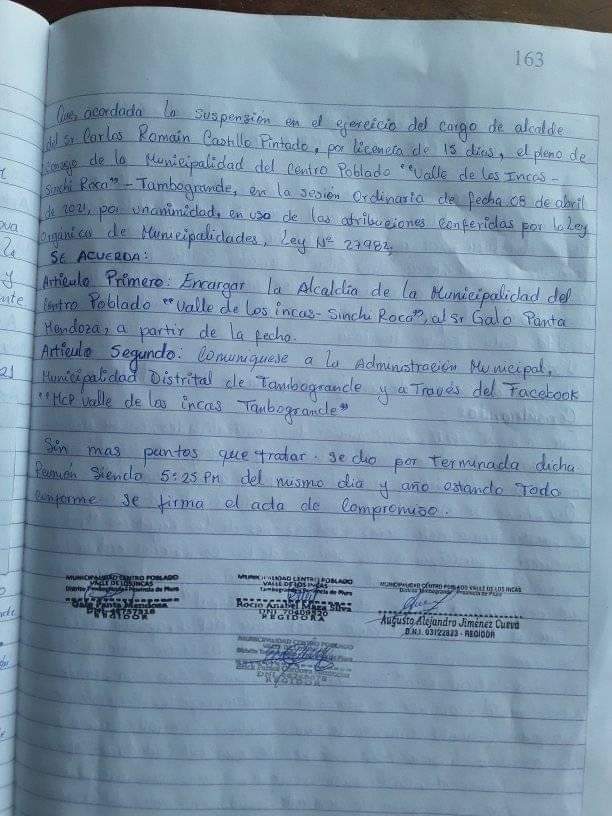 163
Que, acordada la suspensión en el ejercicio del cargo de alcalde
del sr Carlos Romain Castillo Pintado, por licencia de 15 dias, el pleno de
consejo de la Municipalidad del Centro Poblado "Valle de los Incas-
Sinchi Roca" - Tambogrande, en la sesión Ordinaria de fecha 08 de abril
de 2021, por unanimidad, en uso de las atribuciones conferidas por la Ley
Organica de Municipalidades, Ley Nº 27982,
SE ACUERDA:
Articulo Primero: Encargar la Alcaldia de la Municipalidad del
Centro Poblado "Valle de los incas- Sinchi Roca", al sr Galo Panta
Mendoza, a partir de la fecha.
Articulo Segundo: Comuniquese a la Administración Municipal,
Municipalidad Distrital de Tambogrande y a Través del Facebook
"Mcp Valle de los incas Tambogrande"
Sin mas puntos que tratar. se dio por terminada dicha
Reunión siendo 5:25 PM del mismo dia y año estando Todo
conforme se firma el acta de compromiso.
MUNICIPALIDAD CENTRO POBLADO
VALLE DE LOS INCAS
Distrito Tambogrande Provincia de Piura
Galo Panta Mendoza
REGIDOR
MUNICIPALIDAD CENTRO POBLADO
VALLE DE LOS INCAS
Distrito Tambogrande Provincia de Piura
Rocio Anabel Maza Silva
REGIDORA
MUNICIPALIDAD CENTRO POBLADO VALLE DE LOS INCAS
Distrito Tambogrande Provincia de Piura
Augusto Alejandro Jiménez Cueva
D.N.I. 03122823 - REGIDOR
MUNICIPALIDAD CENTRO POBLADO
VALLE DE LOS INCAS
REGIDOR